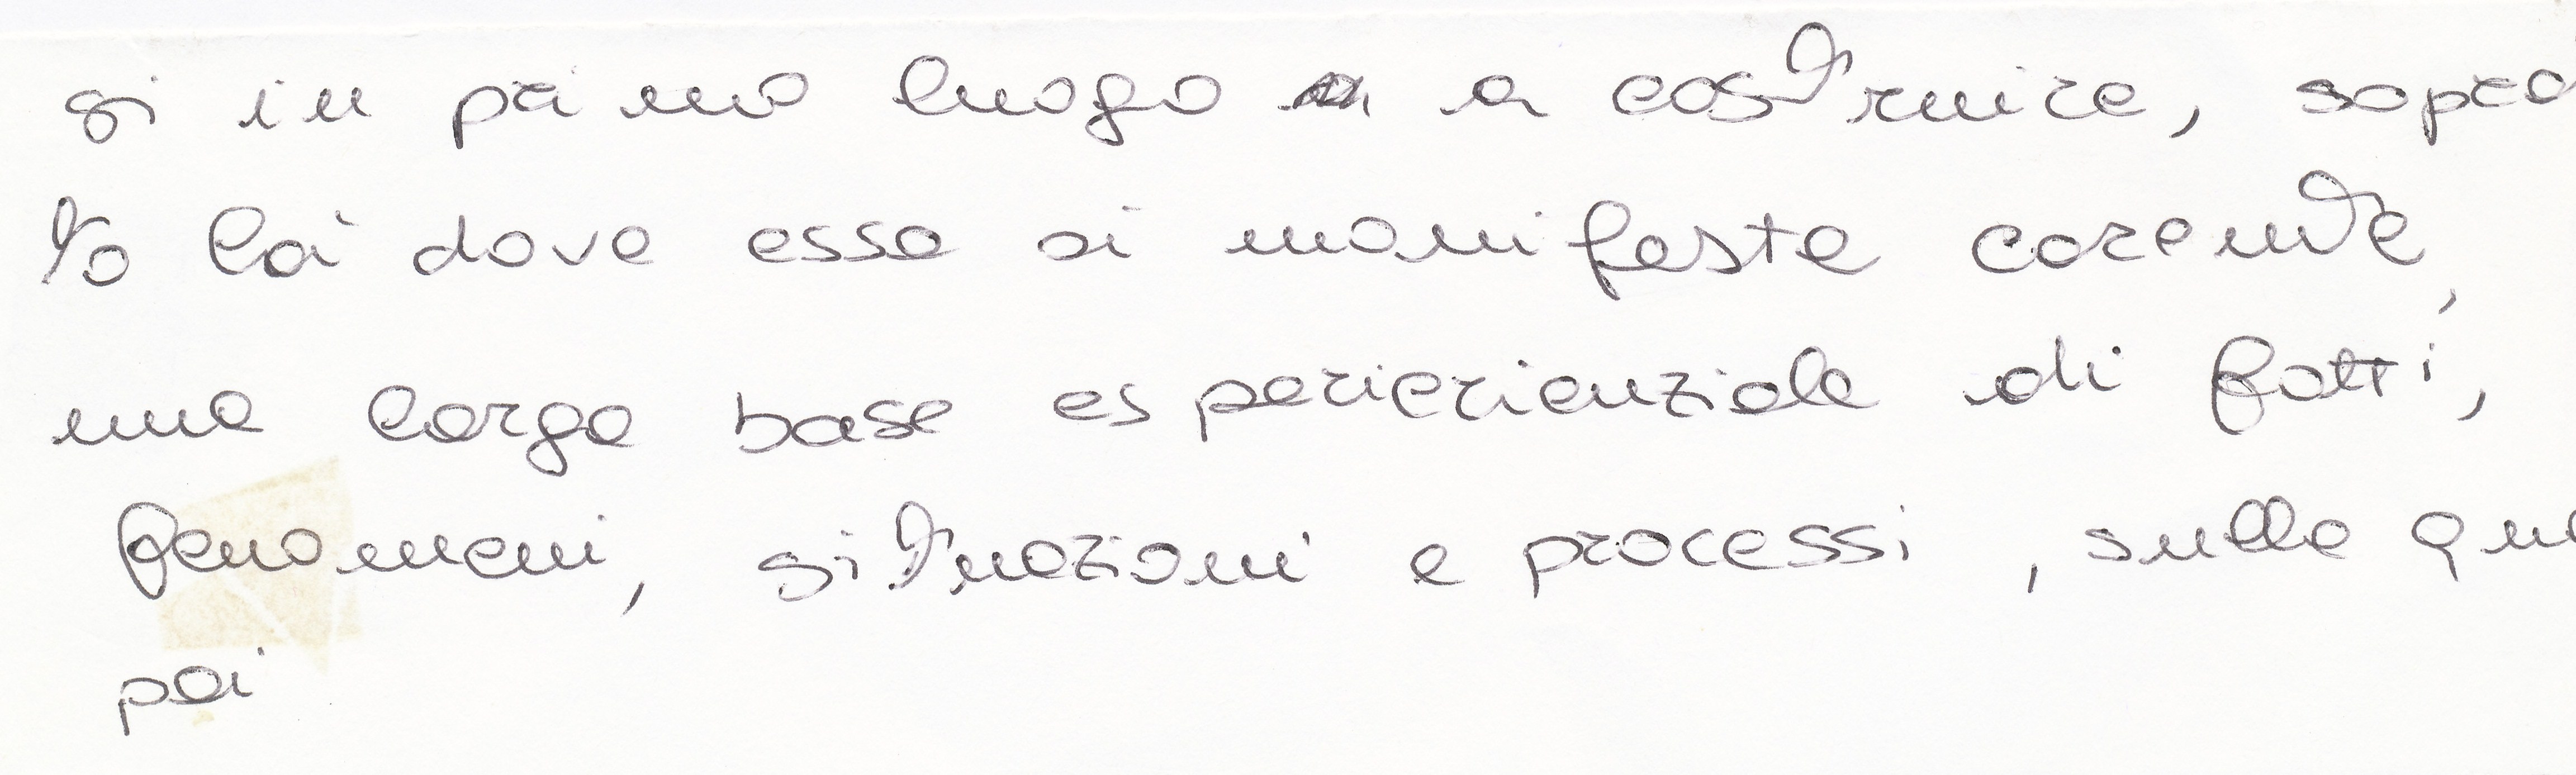 si in primo luogo a costruire, sopra
to là dove essa si manifesta carente,
una larga base esperierienziale di fatti,
fenomeni, situazioni e processi, sulla qua
poi